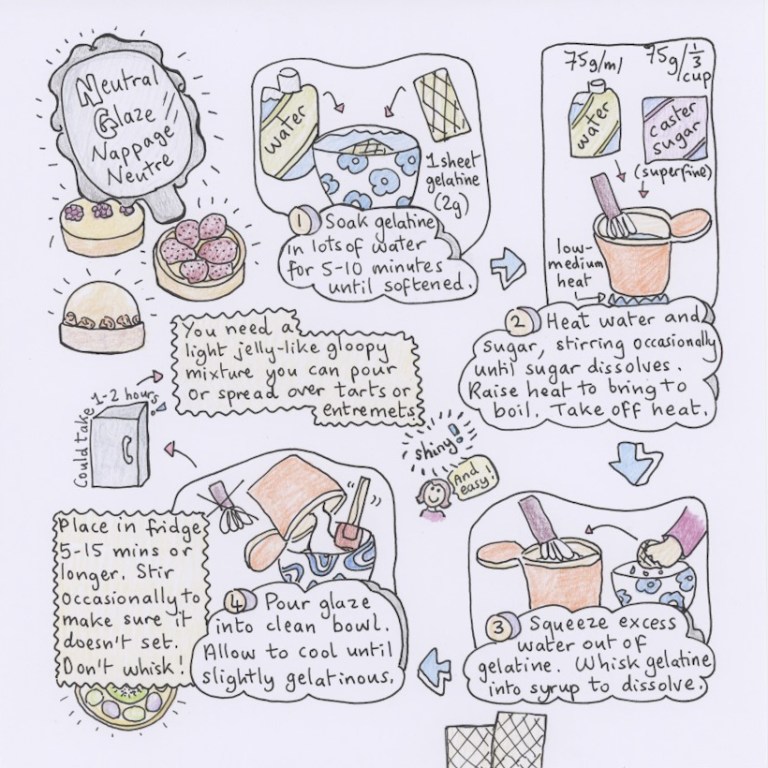 Neutral
Glaze
Nappage
Neutre
water
1 sheet
gelatine
(2g)
1 Soak gelatine
in lots of water
for 5-10 minutes
until softened.
75g/ml
75g/1/3
cup
water
caster
sugar
(superfine)
low-
medium
heat
2 Heat water and
sugar, stirring occasionally
until sugar dissolves.
Raise heat to bring to
boil. Take off heat.
3 Squeeze excess
water out of
gelatine. Whisk gelatine
into syrup to dissolve.
4 Pour glaze
into clean bowl.
Allow to cool until
slightly gelatinous.
Place in fridge
5-15 mins or
longer. Stir
occasionally to
make sure it
doesn't set.
Don't whisk!
Could take 1-2 hours!
You need a
light jelly-like gloopy
mixture you can pour
or spread over tarts or
entremets.
shiny!
And
easy!